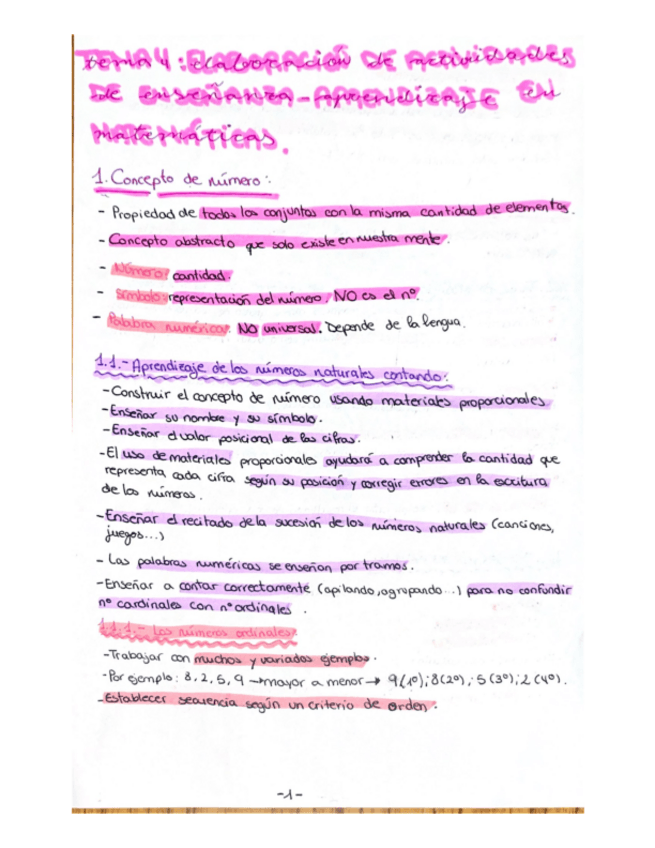 tema 4: elaboración de actividades
de enseñanza-aprendizaje en
matemáticas.
1. Concepto de número:
- Propiedad de todos los conjuntos con la misma cantidad de elementos.
- Concepto abstracto que solo existe en nuestra mente.
- Número: cantidad.
- Símbolo: representación del número. NO es el nº.
- Palabra numérica: NO universal. Depende de la lengua.
1.1.- Aprendizaje de los números naturales contando:
- Construir el concepto de número usando materiales proporcionales.
- Enseñar su nombre y su símbolo.
- Enseñar el valor posicional de las cifras.
- El uso de materiales proporcionales ayudará a comprender la cantidad que
representa cada cifra según su posición y corregir errores en la escritura
de los números.
- Enseñar el recitado de la sucesión de los números naturales (canciones,
juegos...)
- Las palabras numéricas se enseñan por tramos.
- Enseñar a contar correctamente (apilando, agrupando...) para no confundir
nº cardinales con nº ordinales.
1.1.1.- Los números ordinales:
- Trabajar con muchos y variados ejemplos.
- Por ejemplo: 8, 2, 5, 9 → mayor a menor → 9(1º); 8(2º); 5(3º); 2(4º).
- Establecer secuencia según un criterio de orden.
-1-